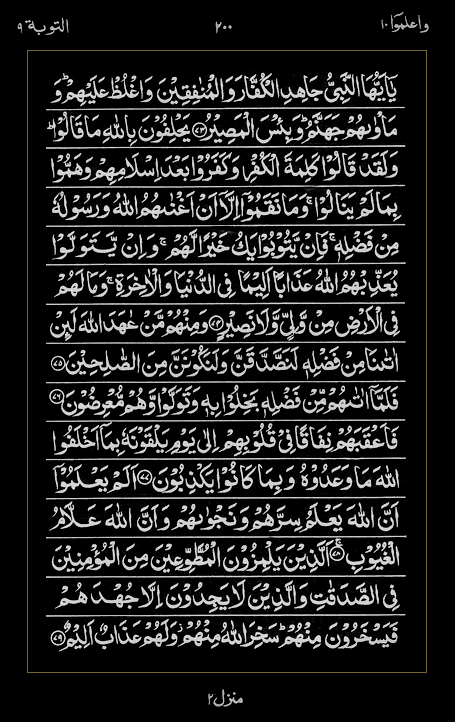 واعلموا ١٠ ٢٠٠ التوبة ٩
يٰۤاَيُّهَا النَّبِيُّ جَاهِدِ الۡكُفَّارَ وَالۡمُنٰفِقِيۡنَ وَاغۡلُظۡ عَلَيۡهِمۡ‌ؕ وَ
مَاۡوٰٮهُمۡ جَهَـنَّمُ‌ؕ وَبِئۡسَ الۡمَصِيۡرُ ﴿۷۳﴾ يَحۡلِفُوۡنَ بِاللّٰهِ مَا قَالُوۡا ؕ
وَلَقَدۡ قَالُوۡا كَلِمَةَ الۡـكُفۡرِ وَكَفَرُوۡا بَعۡدَ اِسۡلَامِهِمۡ وَهَمُّوۡا
بِمَا لَمۡ يَنَالُوۡا‌ ۚ وَمَا نَقَمُوۡۤا اِلَّاۤ اَنۡ اَغۡنٰٮهُمُ اللّٰهُ وَرَسُوۡلُهٗ
مِنۡ فَضۡلِهٖ‌ ۚ فَاِنۡ يَّتُوۡبُوۡا يَكُ خَيۡرًا لَّهُمۡ‌ ۚ وَاِنۡ يَّتَوَلَّوۡا
يُعَذِّبۡهُمُ اللّٰهُ عَذَابًا اَلِيۡمًا فِى الدُّنۡيَا وَالۡاٰخِرَةِ‌ ۚ وَمَا لَهُمۡ
فِى الۡاَرۡضِ مِنۡ وَّلِىٍّ وَّلَا نَصِيۡرٍ‏ ﴿۷۴﴾ وَمِنۡهُمۡ مَّنۡ عَاهَدَ اللّٰهَ لَٮِٕنۡ
اٰتٰٮنَا مِنۡ فَضۡلِهٖ لَـنَصَّدَّقَنَّ وَلَنَكُوۡنَنَّ مِنَ الصّٰلِحِيۡنَ‏ ﴿۷۵﴾
فَلَمَّاۤ اٰتٰٮهُمۡ مِّنۡ فَضۡلِهٖ بَخِلُوۡا بِهٖ وَتَوَلَّوْا وَّهُمۡ مُّعۡرِضُوۡنَ‏ ﴿۷۶﴾
فَاَعۡقَبَهُمۡ نِفَاقًا فِىۡ قُلُوۡبِهِمۡ اِلٰى يَوۡمِ يَلۡقَوۡنَهٗ بِمَاۤ اَخۡلَفُوا
اللّٰهَ مَا وَعَدُوۡهُ وَبِمَا كَانُوۡا يَكۡذِبُوۡنَ‏ ﴿۷۷﴾ اَلَمۡ يَعۡلَمُوۡۤا
اَنَّ اللّٰهَ يَعۡلَمُ سِرَّهُمۡ وَنَجۡوٰٮهُمۡ وَاَنَّ اللّٰهَ عَلَّامُ
الۡغُيُوۡبِ‌ ۚ‏ ﴿۷۸﴾ اَلَّذِيۡنَ يَلۡمِزُوۡنَ الۡمُطَّوِّعِيۡنَ مِنَ الۡمُؤۡمِنِيۡنَ
فِى الصَّدَقٰتِ وَالَّذِيۡنَ لَا يَجِدُوۡنَ اِلَّا جُهۡدَهُمۡ
فَيَسۡخَرُوۡنَ مِنۡهُمۡؕ سَخِرَ اللّٰهُ مِنۡهُمۡ وَلَهُمۡ عَذَابٌ اَلِيۡمٌ‏ ﴿۷۹﴾
منزل ٢